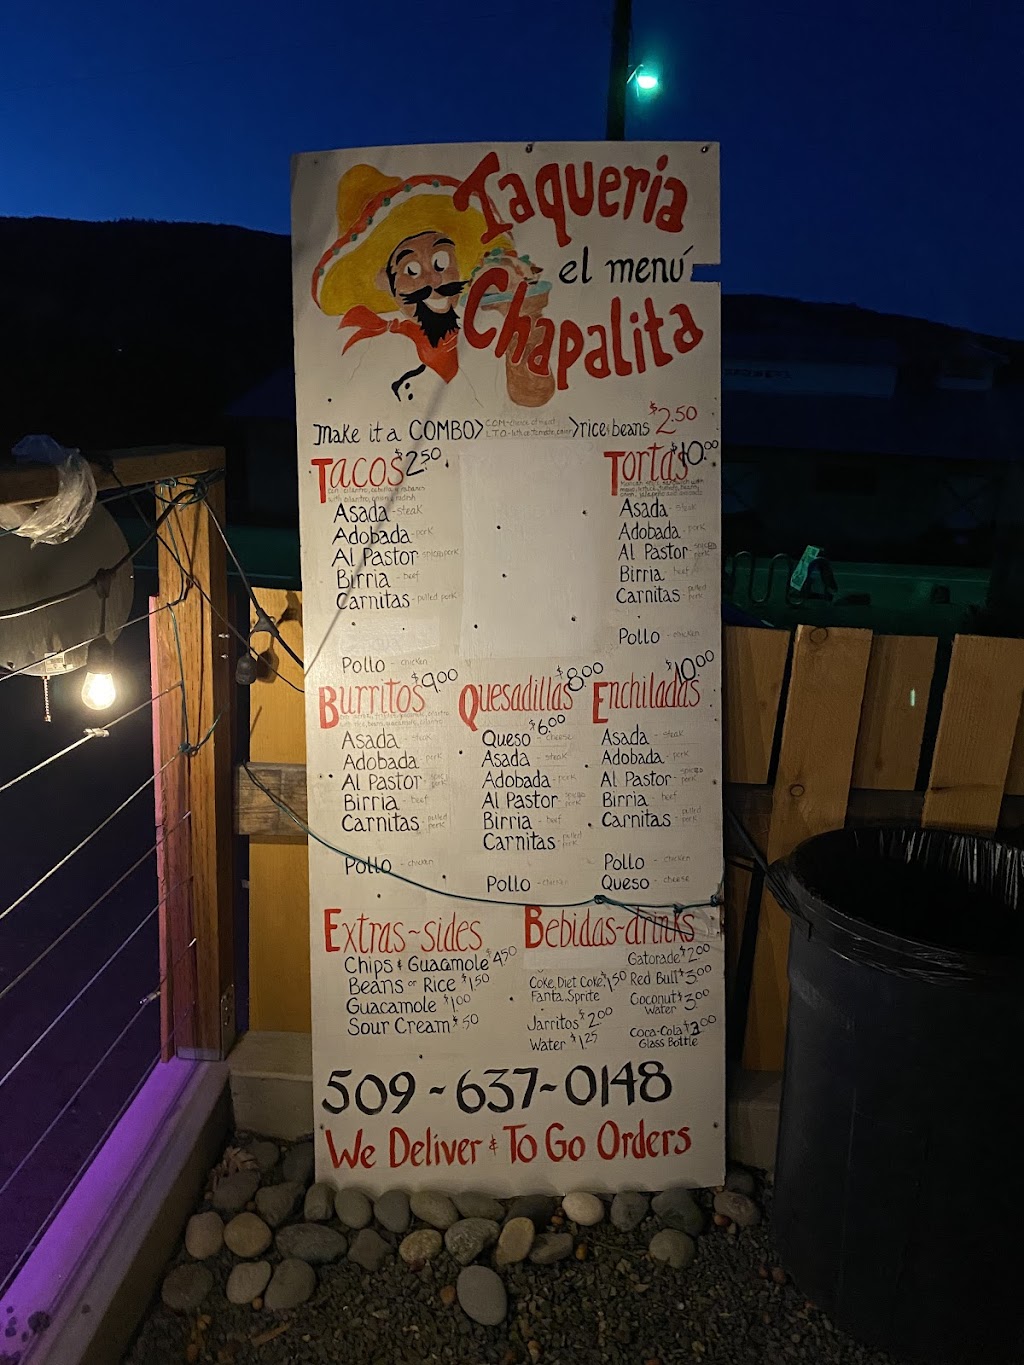 Taqueria
el menú
Chapalita
Make it a COMBO> rice & beans $2.50
Tacos $2.50
with cilantro, onion & radish
Asada - steak
Adobada - pork
Al Pastor - spiced pork
Birria - beef
Carnitas - pulled pork
Pollo - chicken
Tortas $10.00
Asada - steak
Adobada - pork
Al Pastor - spiced pork
Birria - beef
Carnitas - pulled pork
Pollo - chicken
Burritos $9.00
Asada - steak
Adobada - pork
Al Pastor - spiced pork
Birria - beef
Carnitas - pulled pork
Pollo - chicken
Quesadillas $8.00
Queso - cheese $6.00
Asada - steak
Adobada - pork
Al Pastor - spiced pork
Birria - beef
Carnitas - pulled pork
Pollo - chicken
Enchiladas $10.00
Asada - steak
Adobada - pork
Al Pastor - spiced pork
Birria - beef
Carnitas - pulled pork
Pollo - chicken
Queso - cheese
Extras~sides
Chips & Guacamole $4.50
Beans or Rice $1.50
Guacamole $1.00
Sour Cream $.50
Bebidas~drinks
Coke, Diet Coke, $1.50
Fanta, Sprite
Jarritos $2.00
Water $1.25
Gatorade $2.00
Red Bull $3.00
Coconut $3.00
Water
Coca-Cola $3.00
Glass Bottle
509~637~0148
We Deliver & To Go Orders